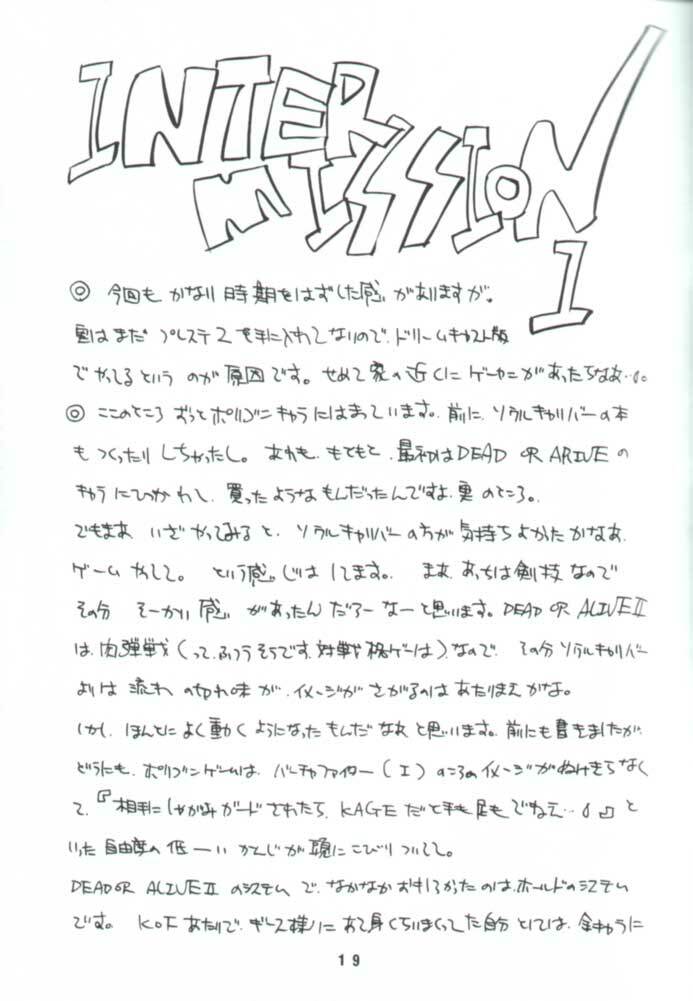 INTER
MISSION
1
◎ 今回も かなり 時期をはずした感がありますが。
実はまだ プレステ2を手に入れてないので、ドリームキャスト版
でやってるという のが原因です。せめて家の近くにゲーセンがあったらなあ…。
◎ ここのところ ずっとポリゴンキャラにはまっています。前に、ソウルキャリバーの本
もつくったりしちゃったし。あれも、もともと、最初はDEAD OR ARIVEの
キャラにひかれて、買ったようなもんだったんですよ、実のところ。
でもまあ いざやってみると、ソウルキャリバーの方が気持ちよかったかなあ、
ゲームやってて。 という感じはしてます。 まあ、あっちは剣技なので
その分 そーかい感 があったんだろーなーと思います。DEAD OR ALIVE II
は、肉弾戦(って、ふつうそうです、対戦格ゲーは)、なので、その分ソウルキャリバー
よりは 流れ の切れ味が、イメージがさがるのはあたりまえかな。
しかし、ほんとによく動くようになったもんだなあ と思います。前にも書きましたが、
どうにも、ポリゴンゲームは、バーチャファイター(I)のころのイメージがぬけきらなく
て、『相手にしゃがみガードされたら、KAGEだと手も足もでねえ…。』と
いった自由度の低ーいかんじが頭にこびりついてて。
DEAD OR ALIVE II のシステムで、なかなかおもしろかったのは、ホールドのシステム
です。 KOFあたりで、ギース様にあて身くらいまくってた自分としては、全キャラに
19